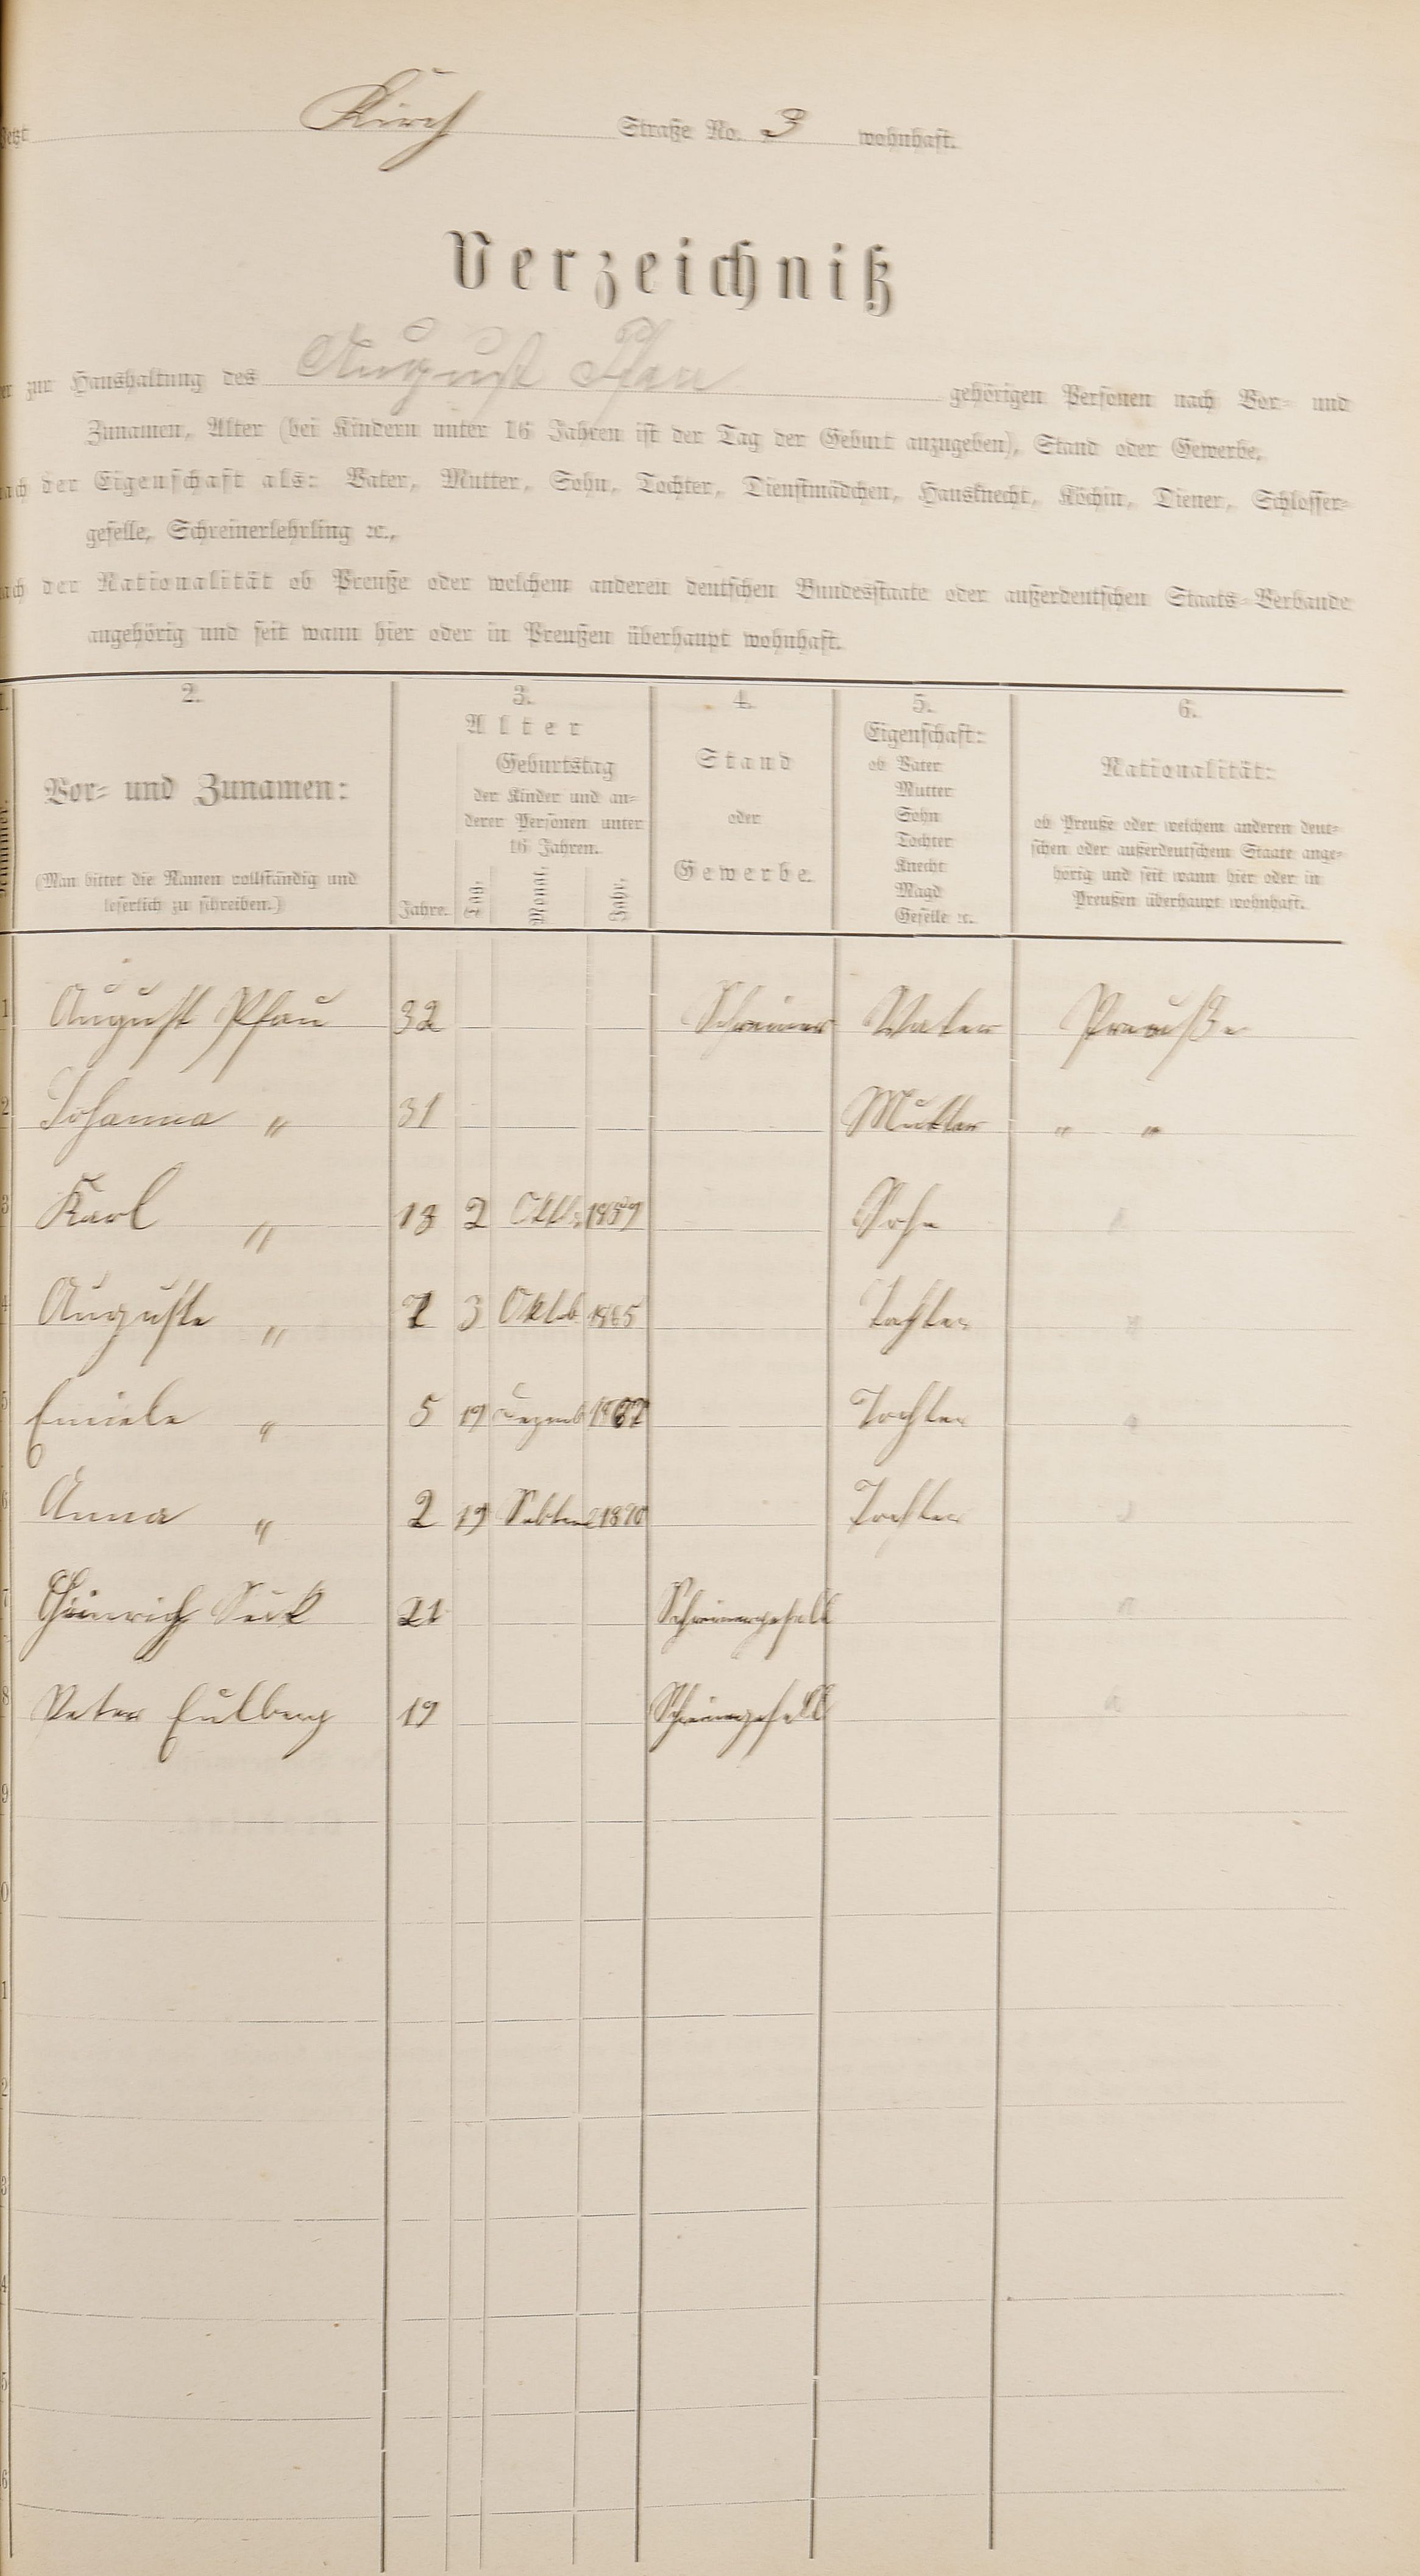 Jetzt Kirch Straße No. 3 wohnhaft.
Verzeichniß
er zur Haushaltung des August Pfau gehörigen Personen nach Vor- und
Zunamen, Alter (bei Kindern unter 16 Jahren ist der Tag der Geburt anzugeben), Stand oder Gewerbe,
nach der Eigenschaft als: Vater, Mutter, Sohn, Tochter, Dienstmädchen, Hausknecht, Köchin, Diener, Schlosser-
geselle, Schreinerlehrling ꝛc.,
nach der Nationalität ob Preuße oder welchem anderen deutschen Bundesstaate oder außerdeutschen Staats-Verbande
angehörig und seit wann hier oder in Preußen überhaupt wohnhaft.
1. 2. 3. 4. 5. 6.
Vor- und Zunamen:
(Man bittet die Namen vollständig und
leserlich zu schreiben.)
Alter
Geburtstag
der Kinder und an-
derer Personen unter
16 Jahren.
Jahre. Tag. Monat. Jahr.
Stand
oder
Gewerbe.
Eigenschaft:
ob Vater
Mutter
Sohn
Tochter
Knecht
Magd
Geselle ꝛc.
Nationalität:
ob Preuße oder welchem anderen deut-
schen oder außerdeutschem Staate ange-
hörig und seit wann hier oder in
Preußen überhaupt wohnhaft.
1 August Pfau 32 Schreiner Vater Preuße
2 Johanna " 31 Mutter " "
3 Karl " 13 2 Oktb. 1859 Sohn "
4 Auguste " 7 3 Oktob 1865 Tochter "
5 Emiele " 5 19 Dezemb 1867 Tochter "
6 Anna " 2 19 Sebtem 1870 Tochter "
7 Heinrich Seck 21 Schreinergesell "
8 Peter Eulberg 19 Schreinergesell "
9
0
1
2
3
4
5
6